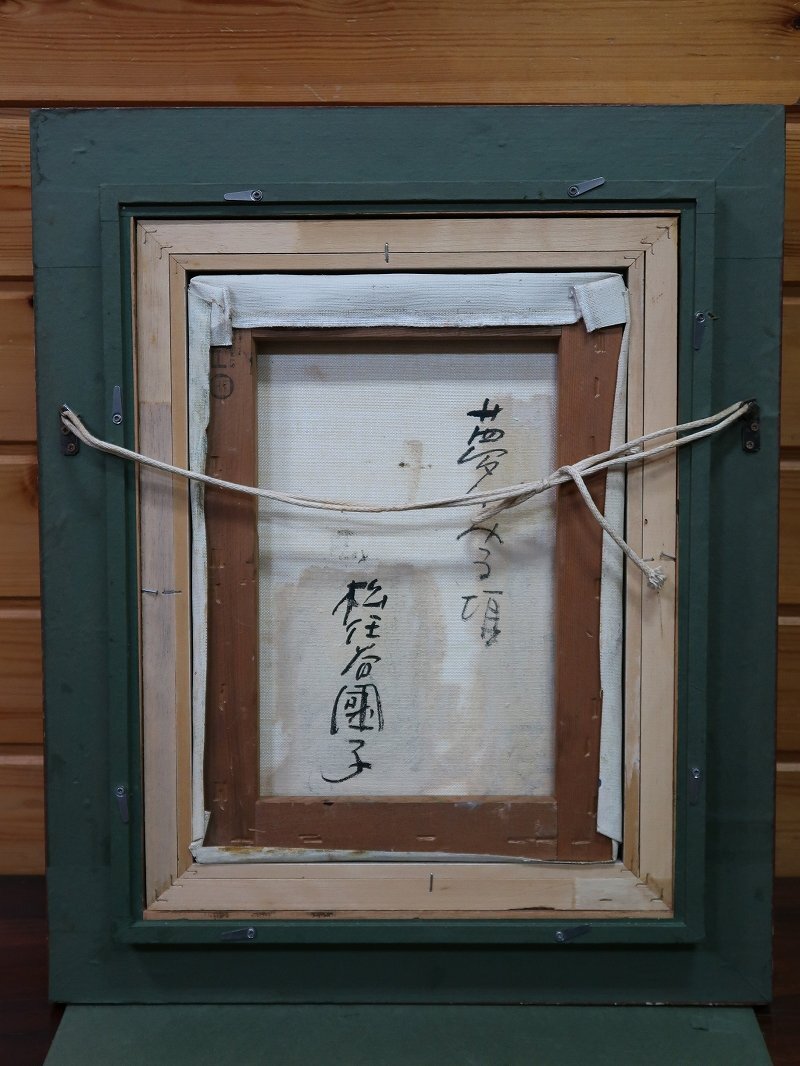 夢みる頃
松任谷國子